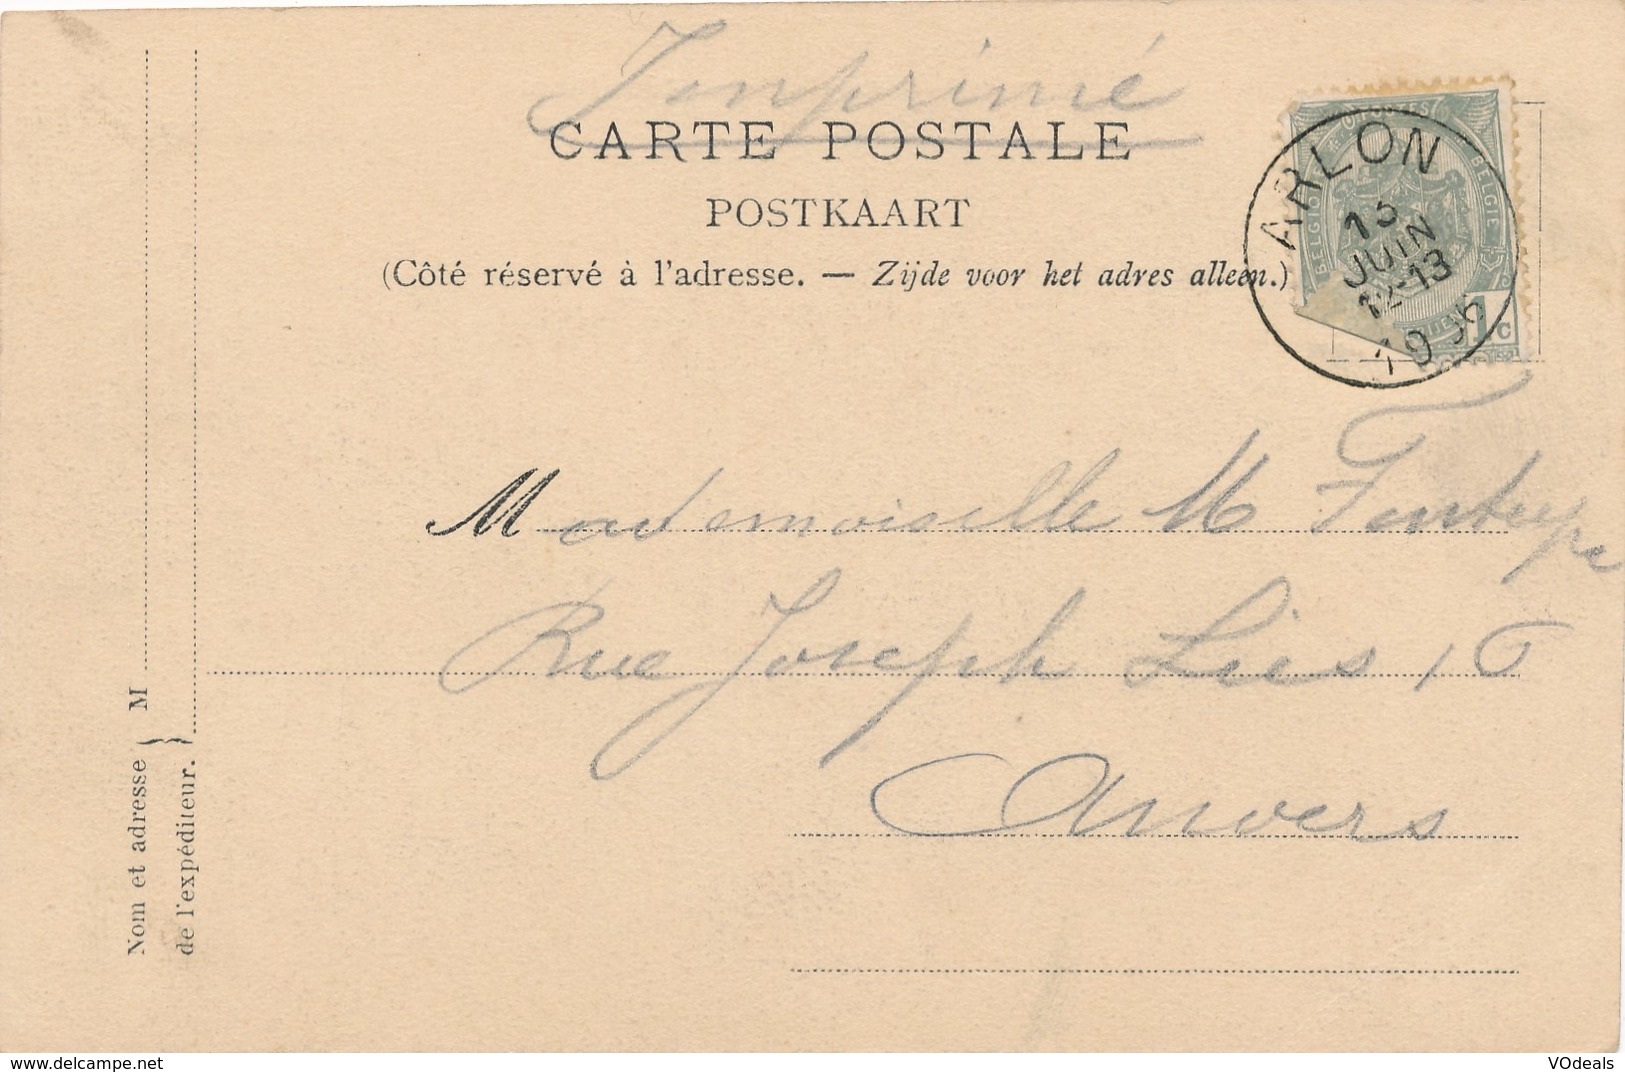 Imprimé
CARTE POSTALE
POSTKAART
(Côté réservé à l'adresse. — Zijde voor het adres alleen.)
ARLON
15
JUIN
12-13
BELGIQUE
BELGIE
1 C
Mademoiselle M
Rue Joseph Lies,
Anvers
M
Nom et adresse
de l'expéditeur.
http://www.delcampe.net
VOdeals